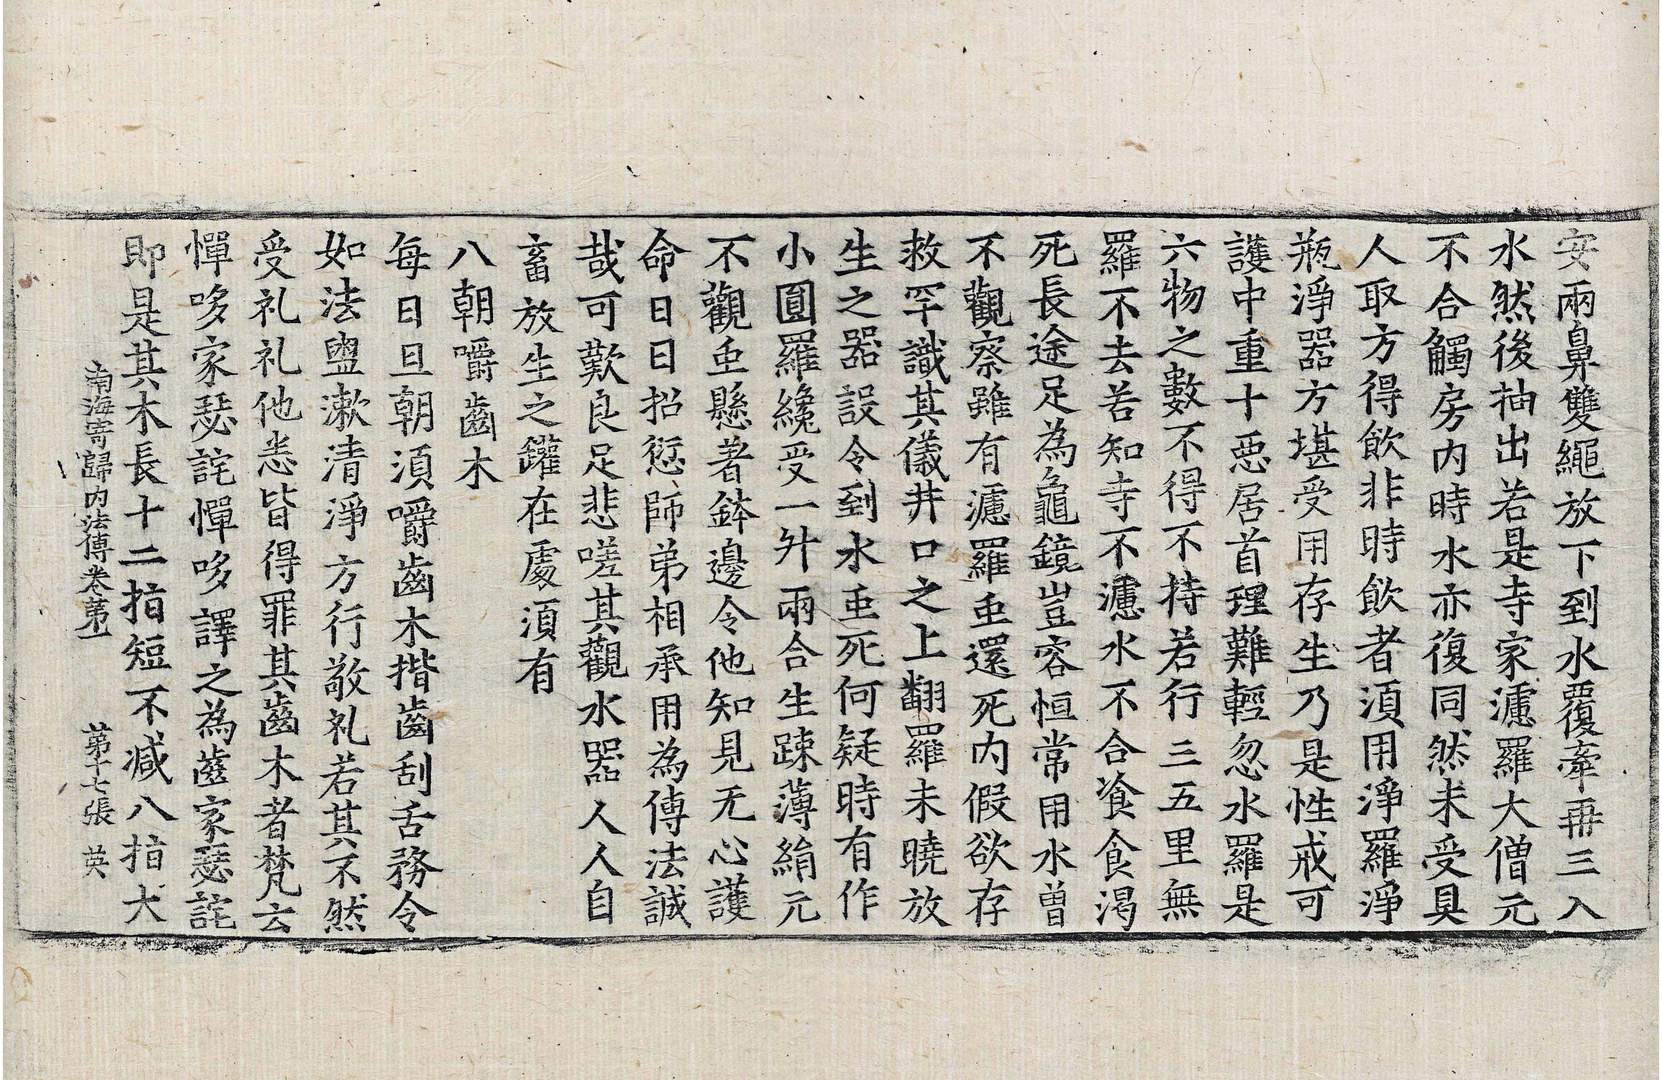 安兩鼻雙繩放下到水覆牽再三入
水然後抽出若是寺家濾羅大僧元
不合觸房內時水亦復同然未受具
人取方得飲非時飲者湏用淨羅淨
瓶淨器方堪受用存生乃是性戒可
護中重十惡居首理難輕忽水羅是
六物之數不得不持若行三五里無
羅不去若知寺不濾水不合飡食渴
死長途足為龜鏡豈容恒常用水曾
不觀察雖有濾羅䖝還死內假欲存
救罕識其儀井口之上翻羅未曉放
生之器設令到水䖝死何疑時有作
小圓羅纔受一升兩合生踈薄絹元
不觀䖝懸著鉢邊令他知見无心護
命日日招愆師弟相承用為傳法誠
哉可歎良足悲嗟其觀水器人人自
畜放生之鑵在處湏有
八朝嚼齒木
每日旦朝湏嚼齒木揩齒刮舌務令
如法盥漱清淨方行敬礼若其不然
受礼礼他悉皆得罪其齒木者梵云
憚哆家瑟詫憚哆譯之為齒家瑟詫
即是其木長十二指短不減八指大
南海寄歸內法傳卷第一 第十七張 英